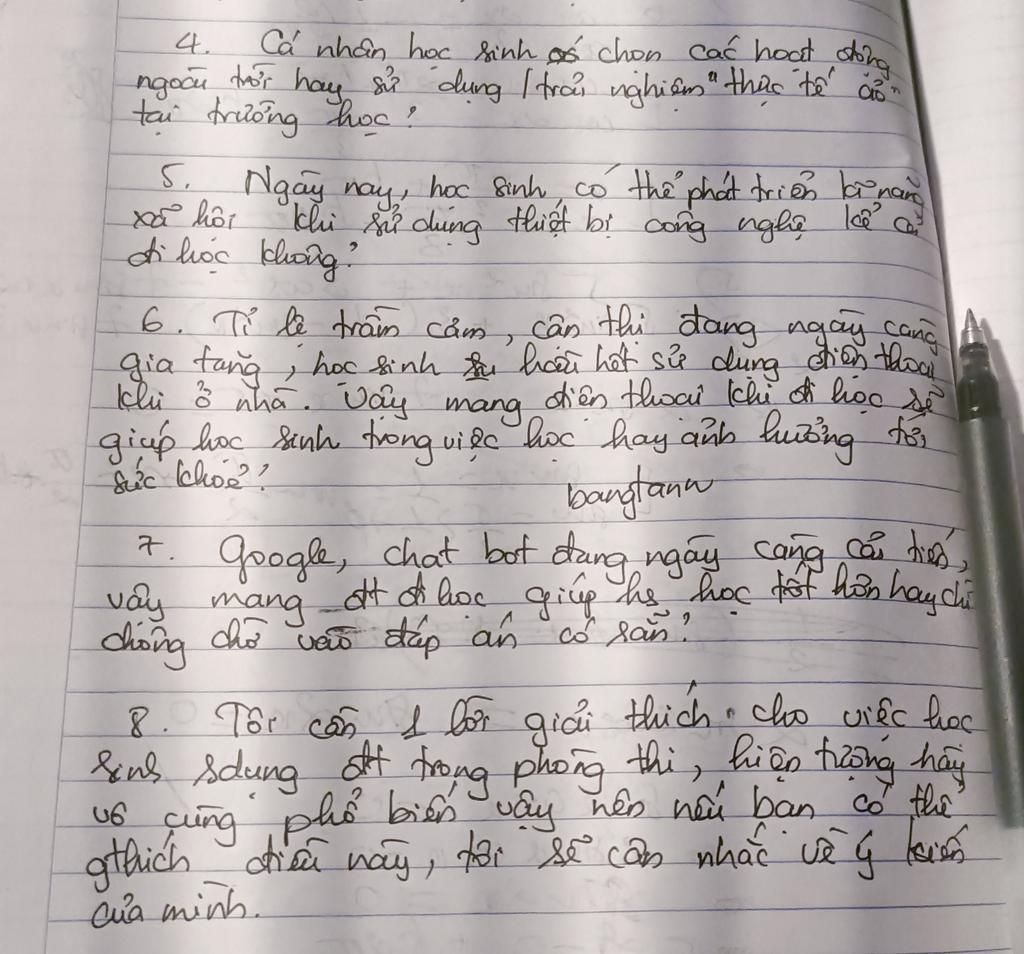 4. Cá nhân học sinh có chọn các hoạt động
ngoài trời hay sử dụng / trải nghiệm "thực tế ảo"
tại trường học?
5. Ngày nay, học sinh có thể phát triển kĩ năng
xã hội khi sử dụng thiết bị công nghệ kể cả
đi học không?
6. Tỉ lệ trầm cảm, cận thị đang ngày càng
gia tăng, học sinh hầu hết sử dụng điện thoại
khi ở nhà. Vậy mang điện thoại khi đi học sẽ
giúp học sinh trong việc học hay ảnh hưởng tới
sức khoẻ?
bangtann
7. Google, chat bot đang ngày càng cải tiến,
vậy mang đt đi học giúp hs học tốt hơn hay chỉ
chông chờ vào đáp án có sẵn?
8. Tôi cần 1 lời giải thích cho việc học
sinh sdụng đt trong phòng thi, hiện tượng này
vô cùng phổ biến vậy nên nếu bạn có thể
gthích điều này, tôi sẽ cân nhắc về ý kiến
của mình.